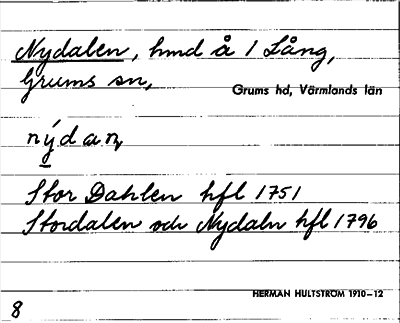 Nydalen, hmd å 1 Lång,
Grums sn,
Grums hd, Värmlands län
nýdaɳ
Stor Dahlen hfl 1751
Stordalen och Nydaln hfl 1796
HERMAN HULTSTRÖM 1910–12
8